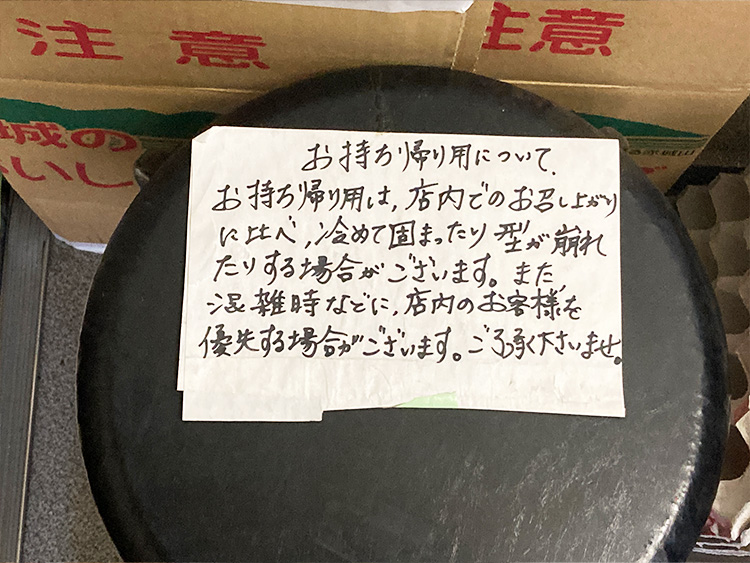 注意
注意
城の
いし
お持ち帰り用について.
お持ち帰り用は,店内でのお召し上がり
に比べ,冷めて固まったり型が崩れ
たりする場合がございます。また,
混雑時などに,店内のお客様を
優先する場合がございます。ご了承下さいませ。